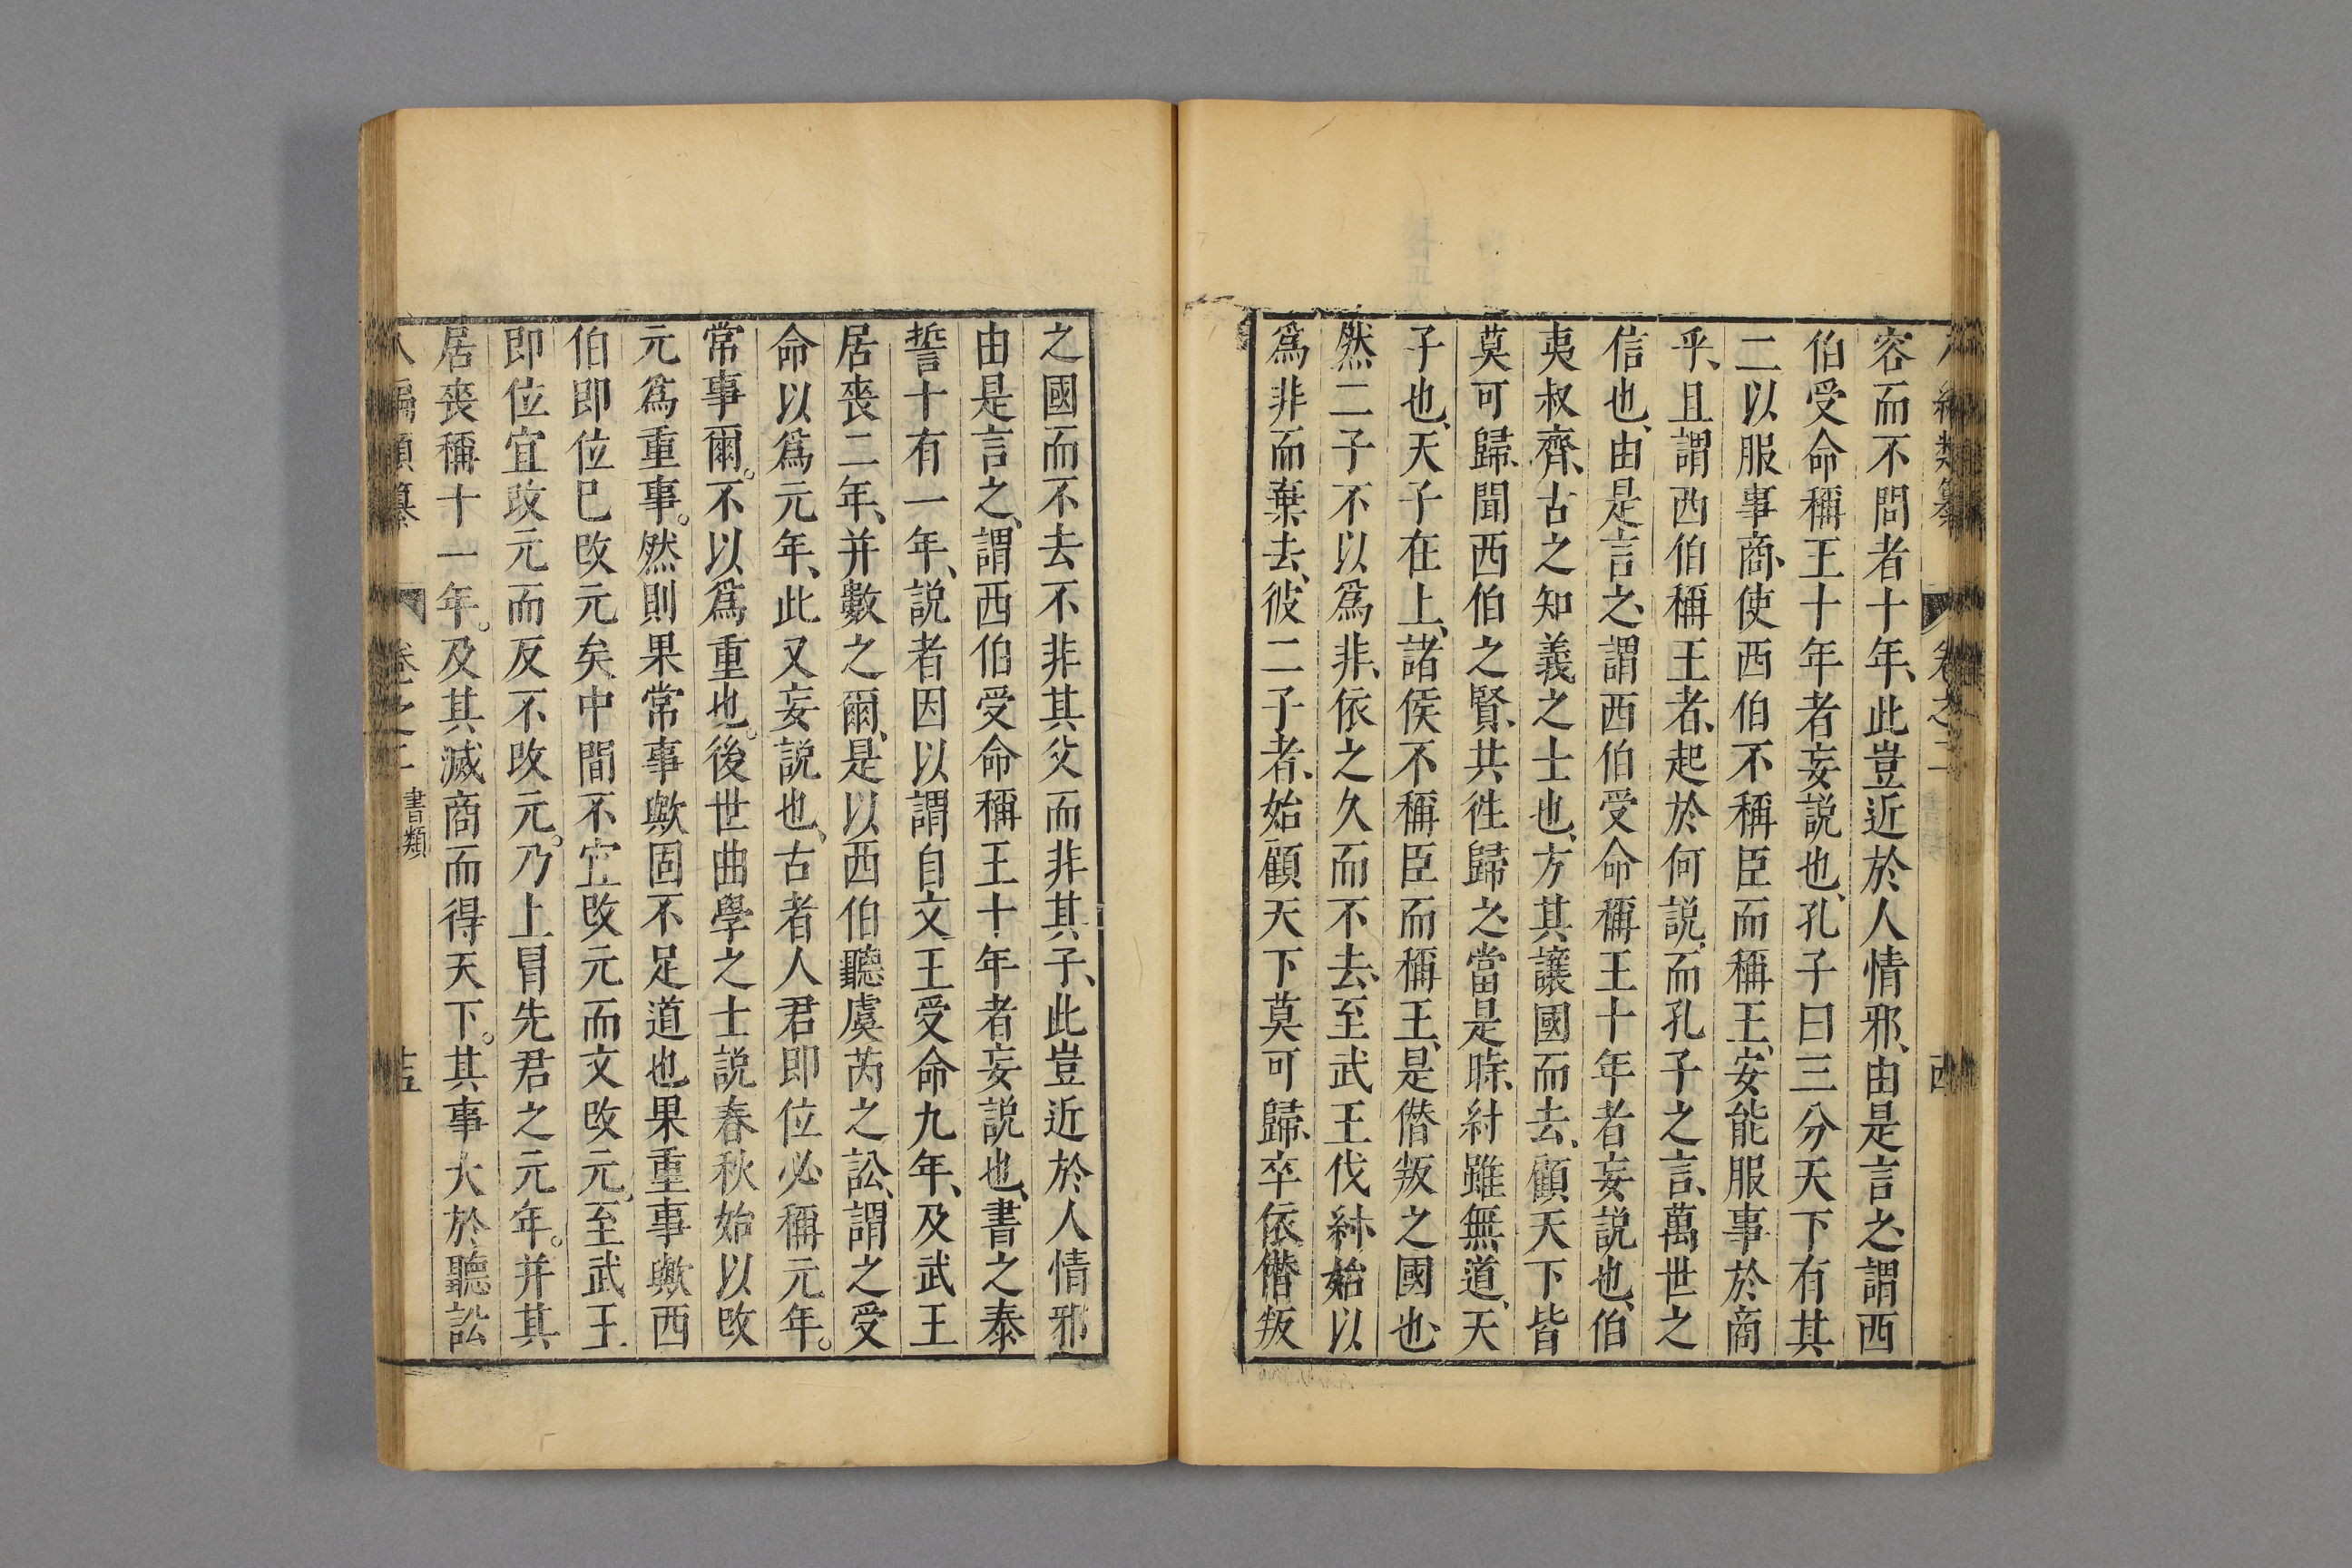 容而不問者十年、此豈近於人情邪、由是言之、謂西
伯受命稱王十年者妄説也、孔子曰三分天下有其
二以服事商、使西伯不稱臣而稱王、安能服事於商
乎、且謂西伯稱王者、起於何説、而孔子之言、萬世之
信也、由是言之、謂西伯受命稱王十年者妄説也、伯
夷叔齊、古之知義之士也、方其讓國而去、顧天下皆
莫可歸、聞西伯之賢、共徃歸之、當是時、紂雖無道、天
子也、天子在上、諸侯不稱臣而稱王、是僣叛之國也、
然二子不以爲非、依之久而不去、至武王伐紂始以
爲非而棄去、彼二子者、始顧天下莫可歸、卒依僣叛
之國而不去不非其父而非其子、此豈近於人情邪
由是言之、謂西伯受命稱王十年者妄説也、書之泰
誓十有一年、説者因以謂自文王受命九年、及武王
居喪二年、并數之爾、是以西伯聽虞芮之訟、謂之受
命以爲元年、此又妄説也、古者人君即位必稱元年。
常事爾。不以爲重也。後世曲學之士説春秋始以改
元爲重事。然則果常事歟固不足道也果重事歟西
伯即位已改元矣中間不宜改元而文改元、至武王
即位宜改元而反不改元。乃上冒先君之元年。并其
居喪稱十一年。及其滅商而得天下。其事大於聽訟
編類纂 卷之二 書類 十五